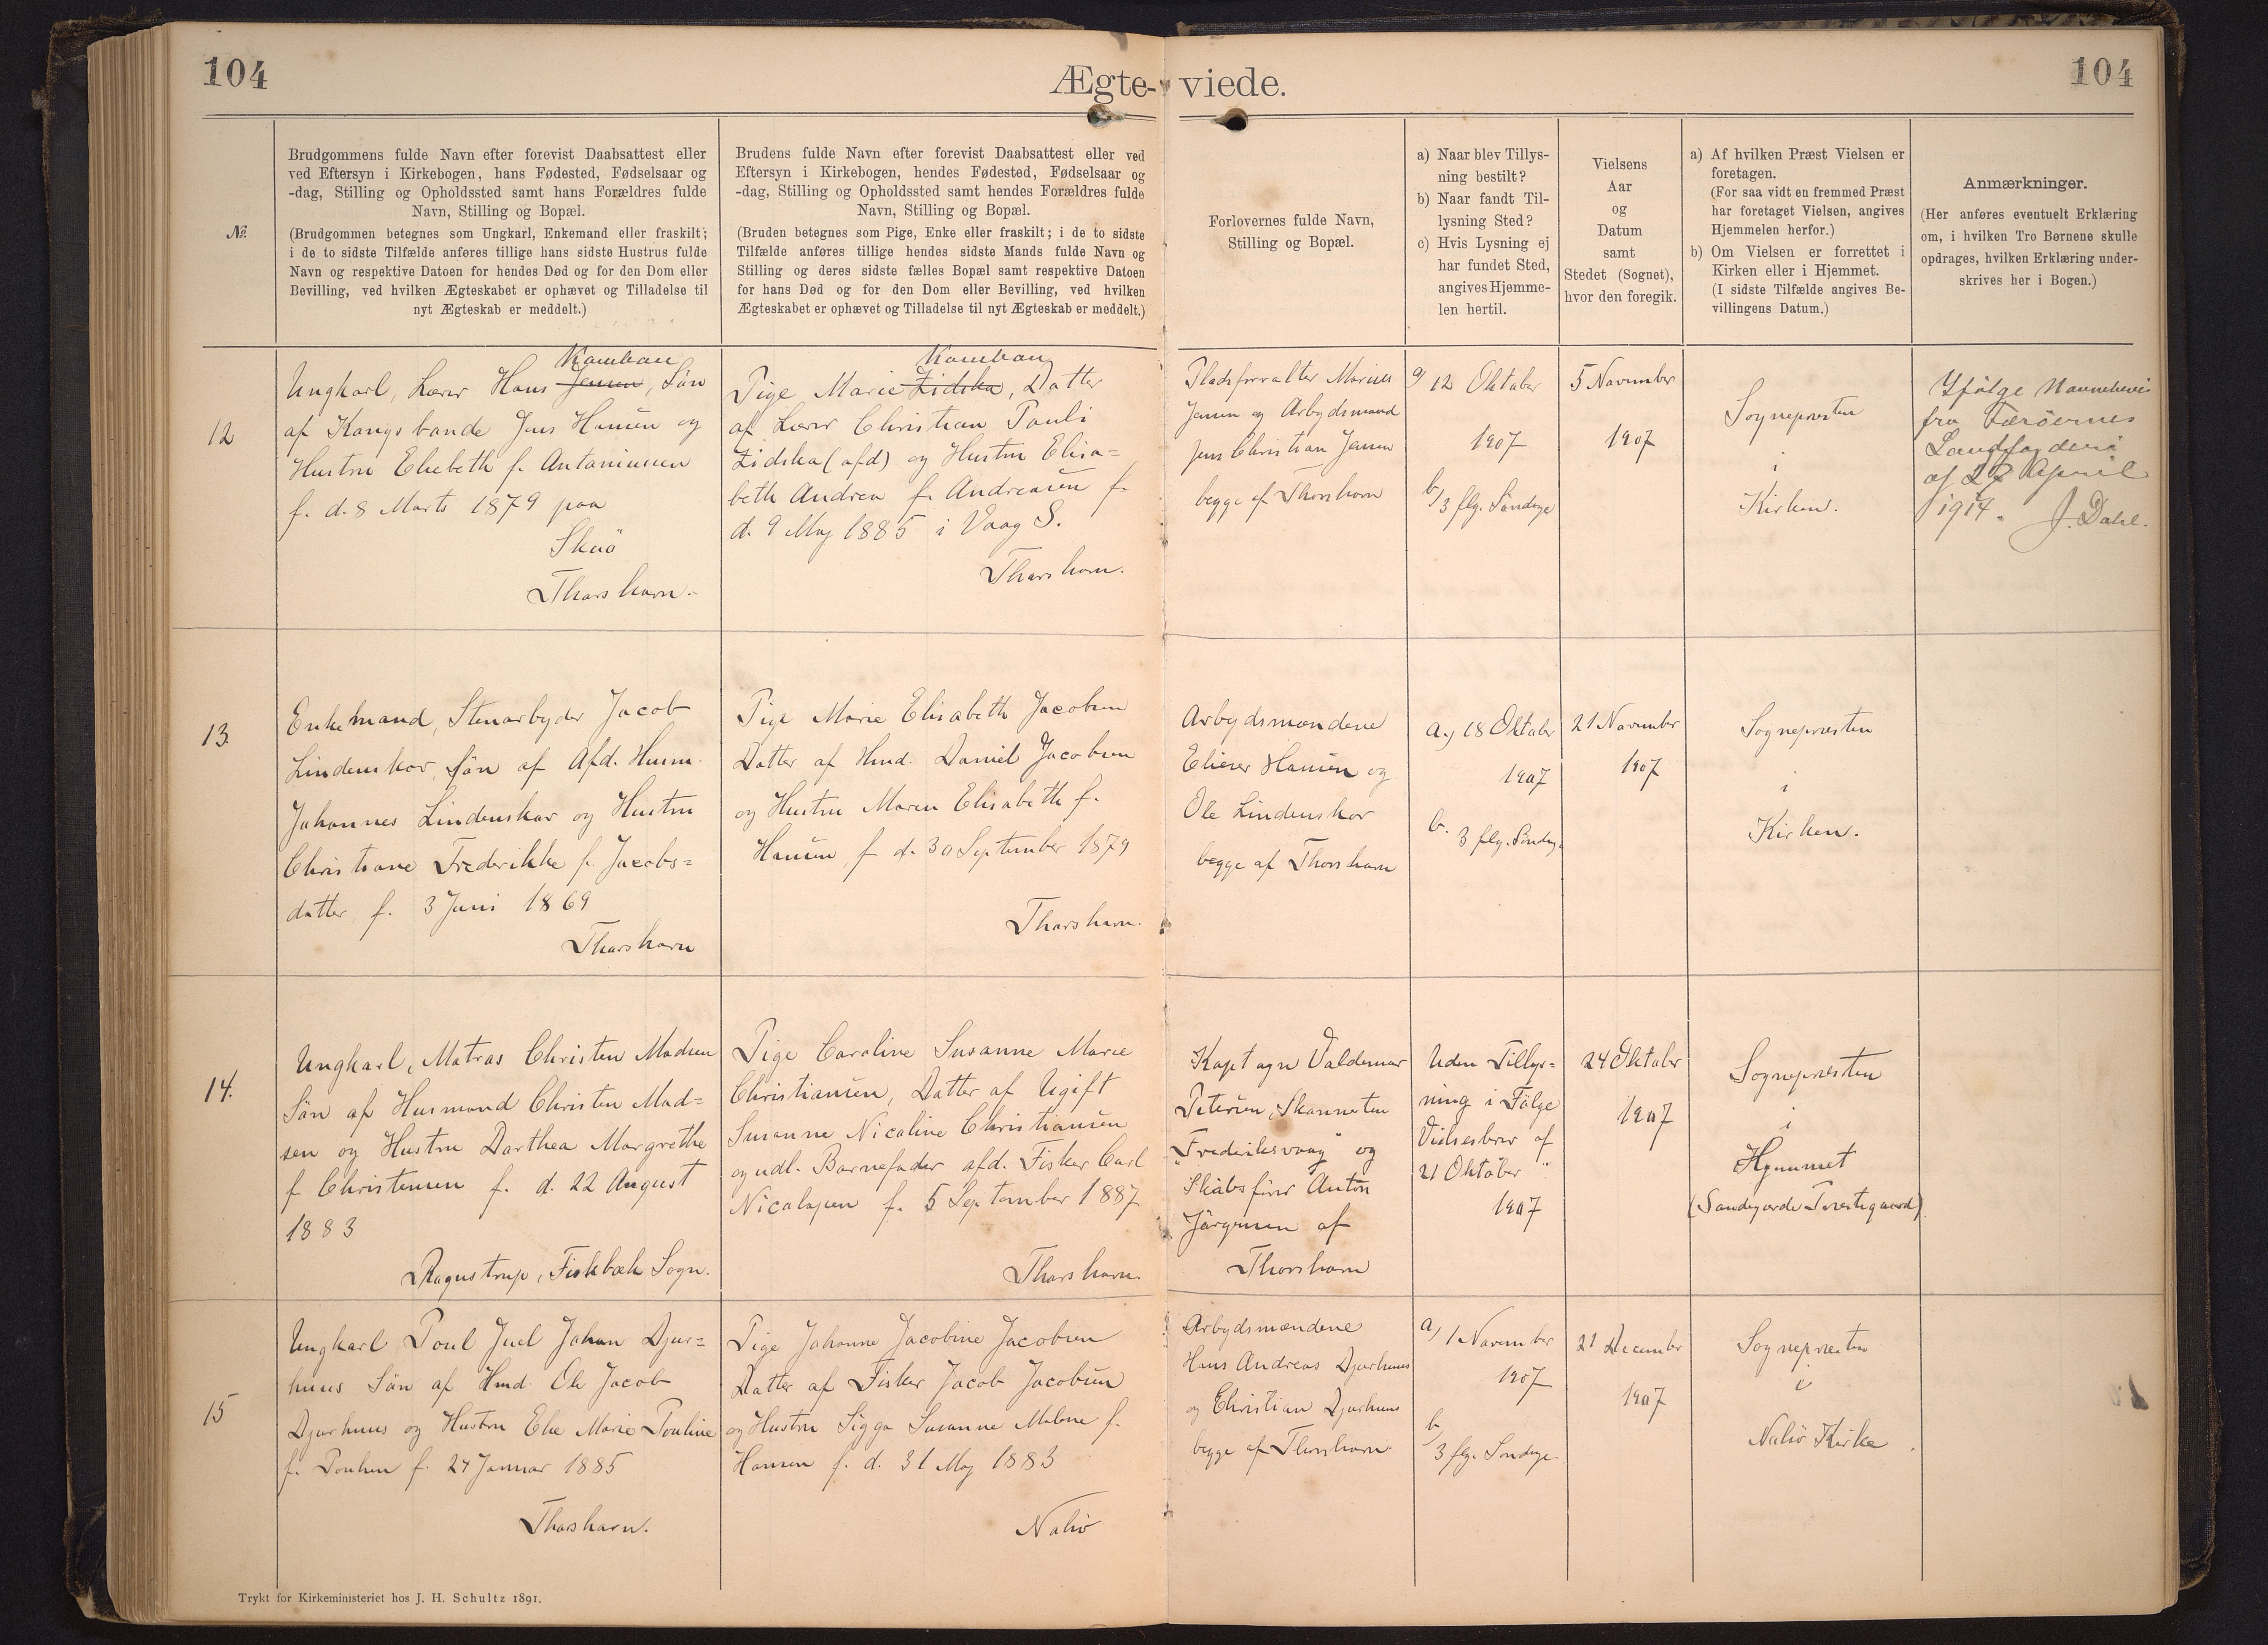 104
Ægte- viede.
104
№.
Brudgommens fulde Navn efter forevist Daabsattest eller
ved Eftersyn i Kirkebogen, hans Fødested, Fødselsaar og
-dag, Stilling og Opholdssted samt hans Forældres fulde
Navn, Stilling og Bopæl.
(Brudgommen betegnes som Ungkarl, Enkemand eller fraskilt;
i de to sidste Tilfælde anføres tillige hans sidste Hustrus fulde
Navn og respektive Datoen for hendes Død og for den Dom eller
Bevilling, ved hvilken Ægteskabet er ophævet og Tilladelse til
nyt Ægteskab er meddelt.)
Brudens fulde Navn efter forevist Daabsattest eller ved
Eftersyn i Kirkebogen, hendes Fødested, Fødselsaar og
-dag, Stilling og Opholdssted samt hendes Forældres fulde
Navn, Stilling og Bopæl.
(Bruden betegnes som Pige, Enke eller fraskilt; i de to sidste
Tilfælde anføres tillige hendes sidste Mands fulde Navn og
Stilling og deres sidste fælles Bopæl samt respektive Datoen
for hans Død og for den Dom eller Bevilling, ved hvilken
Ægteskabet er ophævet og Tilladelse til nyt Ægteskab er meddelt.)
Forlovernes fulde Navn,
Stilling og Bopæl.
a) Naar blev Tillys-
ning bestilt?
b) Naar fandt Til-
lysning Sted?
c) Hvis Lysning ej
har fundet Sted,
angives Hjemme-
len hertil.
Vielsens
Aar
og
Datum
samt
Stedet (Sognet),
hvor den foregik.
a) Af hvilken Præst Vielsen er
foretagen.
(For saa vidt en fremmed Præst
har foretaget Vielsen, angives
Hjemmelen herfor.)
b) Om Vielsen er forrettet i
Kirken eller i Hjemmet.
(I sidste Tilfælde angives Be-
villingens Datum.)
Anmærkninger.
(Her anføres eventuelt Erklæring
om, i hvilken Tro Børnene skulle
opdrages, hvilken Erklæring under-
skrives her i Bogen.)
12
Kamban
Ungkarl, Lærer Hans Jensen, Sön
af Kongsbonde Jens Hansen og
Hustru Elsebeth f. Antoniussen
f. d. 8 Marts 1879 paa
Skuö
Thorshavn.
Kamban
Pige Marie Lidska, Datter
af Lærer Christian Pauli
Lidska (afd) og Hustru Elisa=
beth Andrea f. Andreasen f.
d. 9 Maj 1885 i Vaag S.
Thorshavn.
Pladsforvalter Marius
Jensen og Arbejdsmand
Jens Christian Jensen
begge af Thorshavn
a) 12 Oktober
1907
b) 3 flg. Söndage
5 November
1907
Sognepræsten
i
Kirken.
Ifølge Navnebevis
fra Færøernes
Landfogderi
af 27 April
1914. J. Dahl.
13.
Enkemand, Stenarbejder Jacob
Lindenskov, Sön af Afd. Husm.
Johannes Lindenskov og Hustru
Christiane Frederikke f. Jacobs=
datter, f. 3 Juni 1869
Thorshavn
Pige Marie Elisabeth Jacobsen
Datter af Hmd. Daniel Jacobsen
og Hustru Maren Elisabeth f.
Hansen, f. d. 30 September 1879
Thorshavn.
Arbejdsmændene
Elieser Hansen og
Ole Lindenskov
begge af Thorshavn
a) 18 Oktober
1907
b. 3 flg. Söndag.
21 November
1907
Sognepræsten
i
Kirken.
14.
Ungkarl, Matros Christen Madsen
Sön af Husmand Christen Mad=
sen og Hustru Dorthea Margrethe
f. Christensen f. d. 22 August
1883
Ragustrup, Fiskbæk Sogn.
Pige Caroline Susanne Marie
Christiansen, Datter af Ugift
Susanne Nicoline Christiansen
og udl. Barnefader afd. Fisker Carl
Nicolajsen f. 5 September 1887
Thorshavn.
Kaptajn Valdemar
Petersen, Skonnerten
"Frederiksvaag" og
Skibsförer Anton
Jörgensen af
Thorshavn
Uden Tillys=
ning i Fölge
Vielsesbrev af
21 Oktober
1907
24 Oktober
1907
Sognepræsten
i
Hjemmet
(Sandegærde Præstegaard)
15
Ungkarl Poul Juel Johan Djur=
huus Sön af Hmd. Ole Jacob
Djurhuus og Hustru Else Marie Pouline
f. Poulsen f. 24 Januar 1885
Thorshavn.
Pige Johanne Jacobine Jacobsen
Datter af Fisker Jacob Jacobsen
og Hustru Sigga Susanne Malene f.
Hansen f. d. 31 Maj 1883
Nolsö
Arbejdsmændene
Hans Andreas Djurhuus
og Christian Djurhuus
begge af Thorshavn
a) 1 November
1907
b)
3 flg. Söndage.
21 December
1907
Sognepræsten
i
Nolsö Kirke.
Trykt for Kirkeministeriet hos J. H. Schultz 1891.